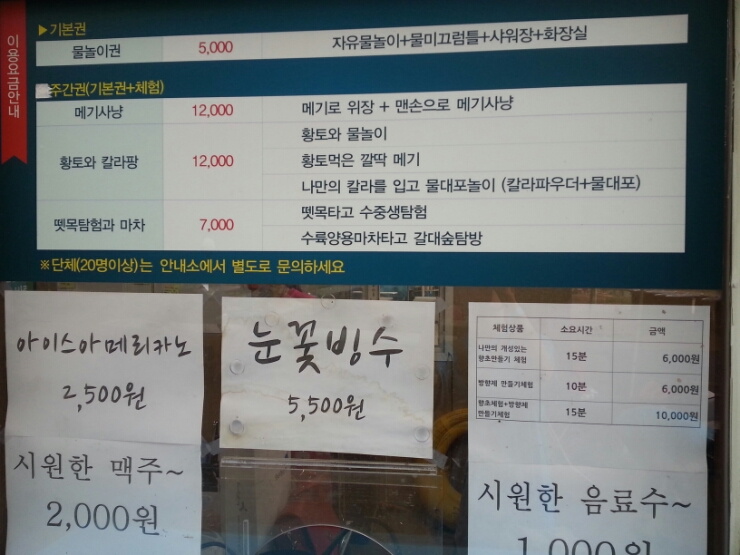 이용요금안내
▶기본권
물놀이권 5,000 자유물놀이+물미끄럼틀+샤워장+화장실
주간권(기본권+체험)
메기사냥 12,000 메기로 위장 + 맨손으로 메기사냥
황토와 칼라팡 12,000 황토와 물놀이
황토먹은 깔딱 메기
나만의 칼라를 입고 물대포놀이 (칼라파우더+물대포)
뗏목탐험과 마차 7,000 뗏목타고 수중생탐험
수륙양용마차타고 갈대숲탐방
※단체(20명이상)는 안내소에서 별도로 문의하세요
아이스아메리카노
2,500원
시원한 맥주~
2,000원
눈꽃빙수
5,500원
체험상품 소요시간 금액
나만의 개성있는
향초만들기 체험 15분 6,000원
방향제 만들기체험 10분 6,000원
향초체험+방향제
만들기체험 15분 10,000원
시원한 음료수~
1,000원